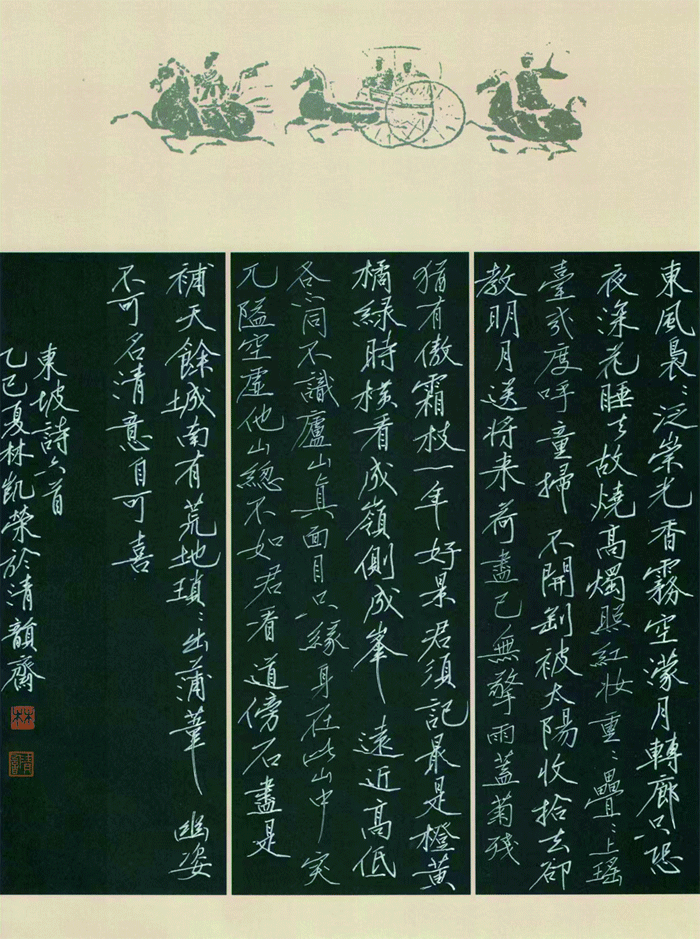 東風裊〻泛崇光香霧空濛月轉廊只恐
夜深花睡去故燒高燭照紅妝重〻疊〻上瑤
臺幾度呼童掃不開剛被太陽收拾去卻
教明月送將來荷盡已無擎雨蓋菊殘
猶有傲霜枝一年好景君須記最是橙黃
橘綠時橫看成嶺側成峯遠近高低
各不同不識廬山真面目只緣身在此山中突
兀隘空虛他山總不如君看道傍石盡是
補天餘城南有荒地瑣〻出蒲葦幽姿
不可名清意自可喜
東坡詩六首
乙巳夏林凱榮於清韻齋